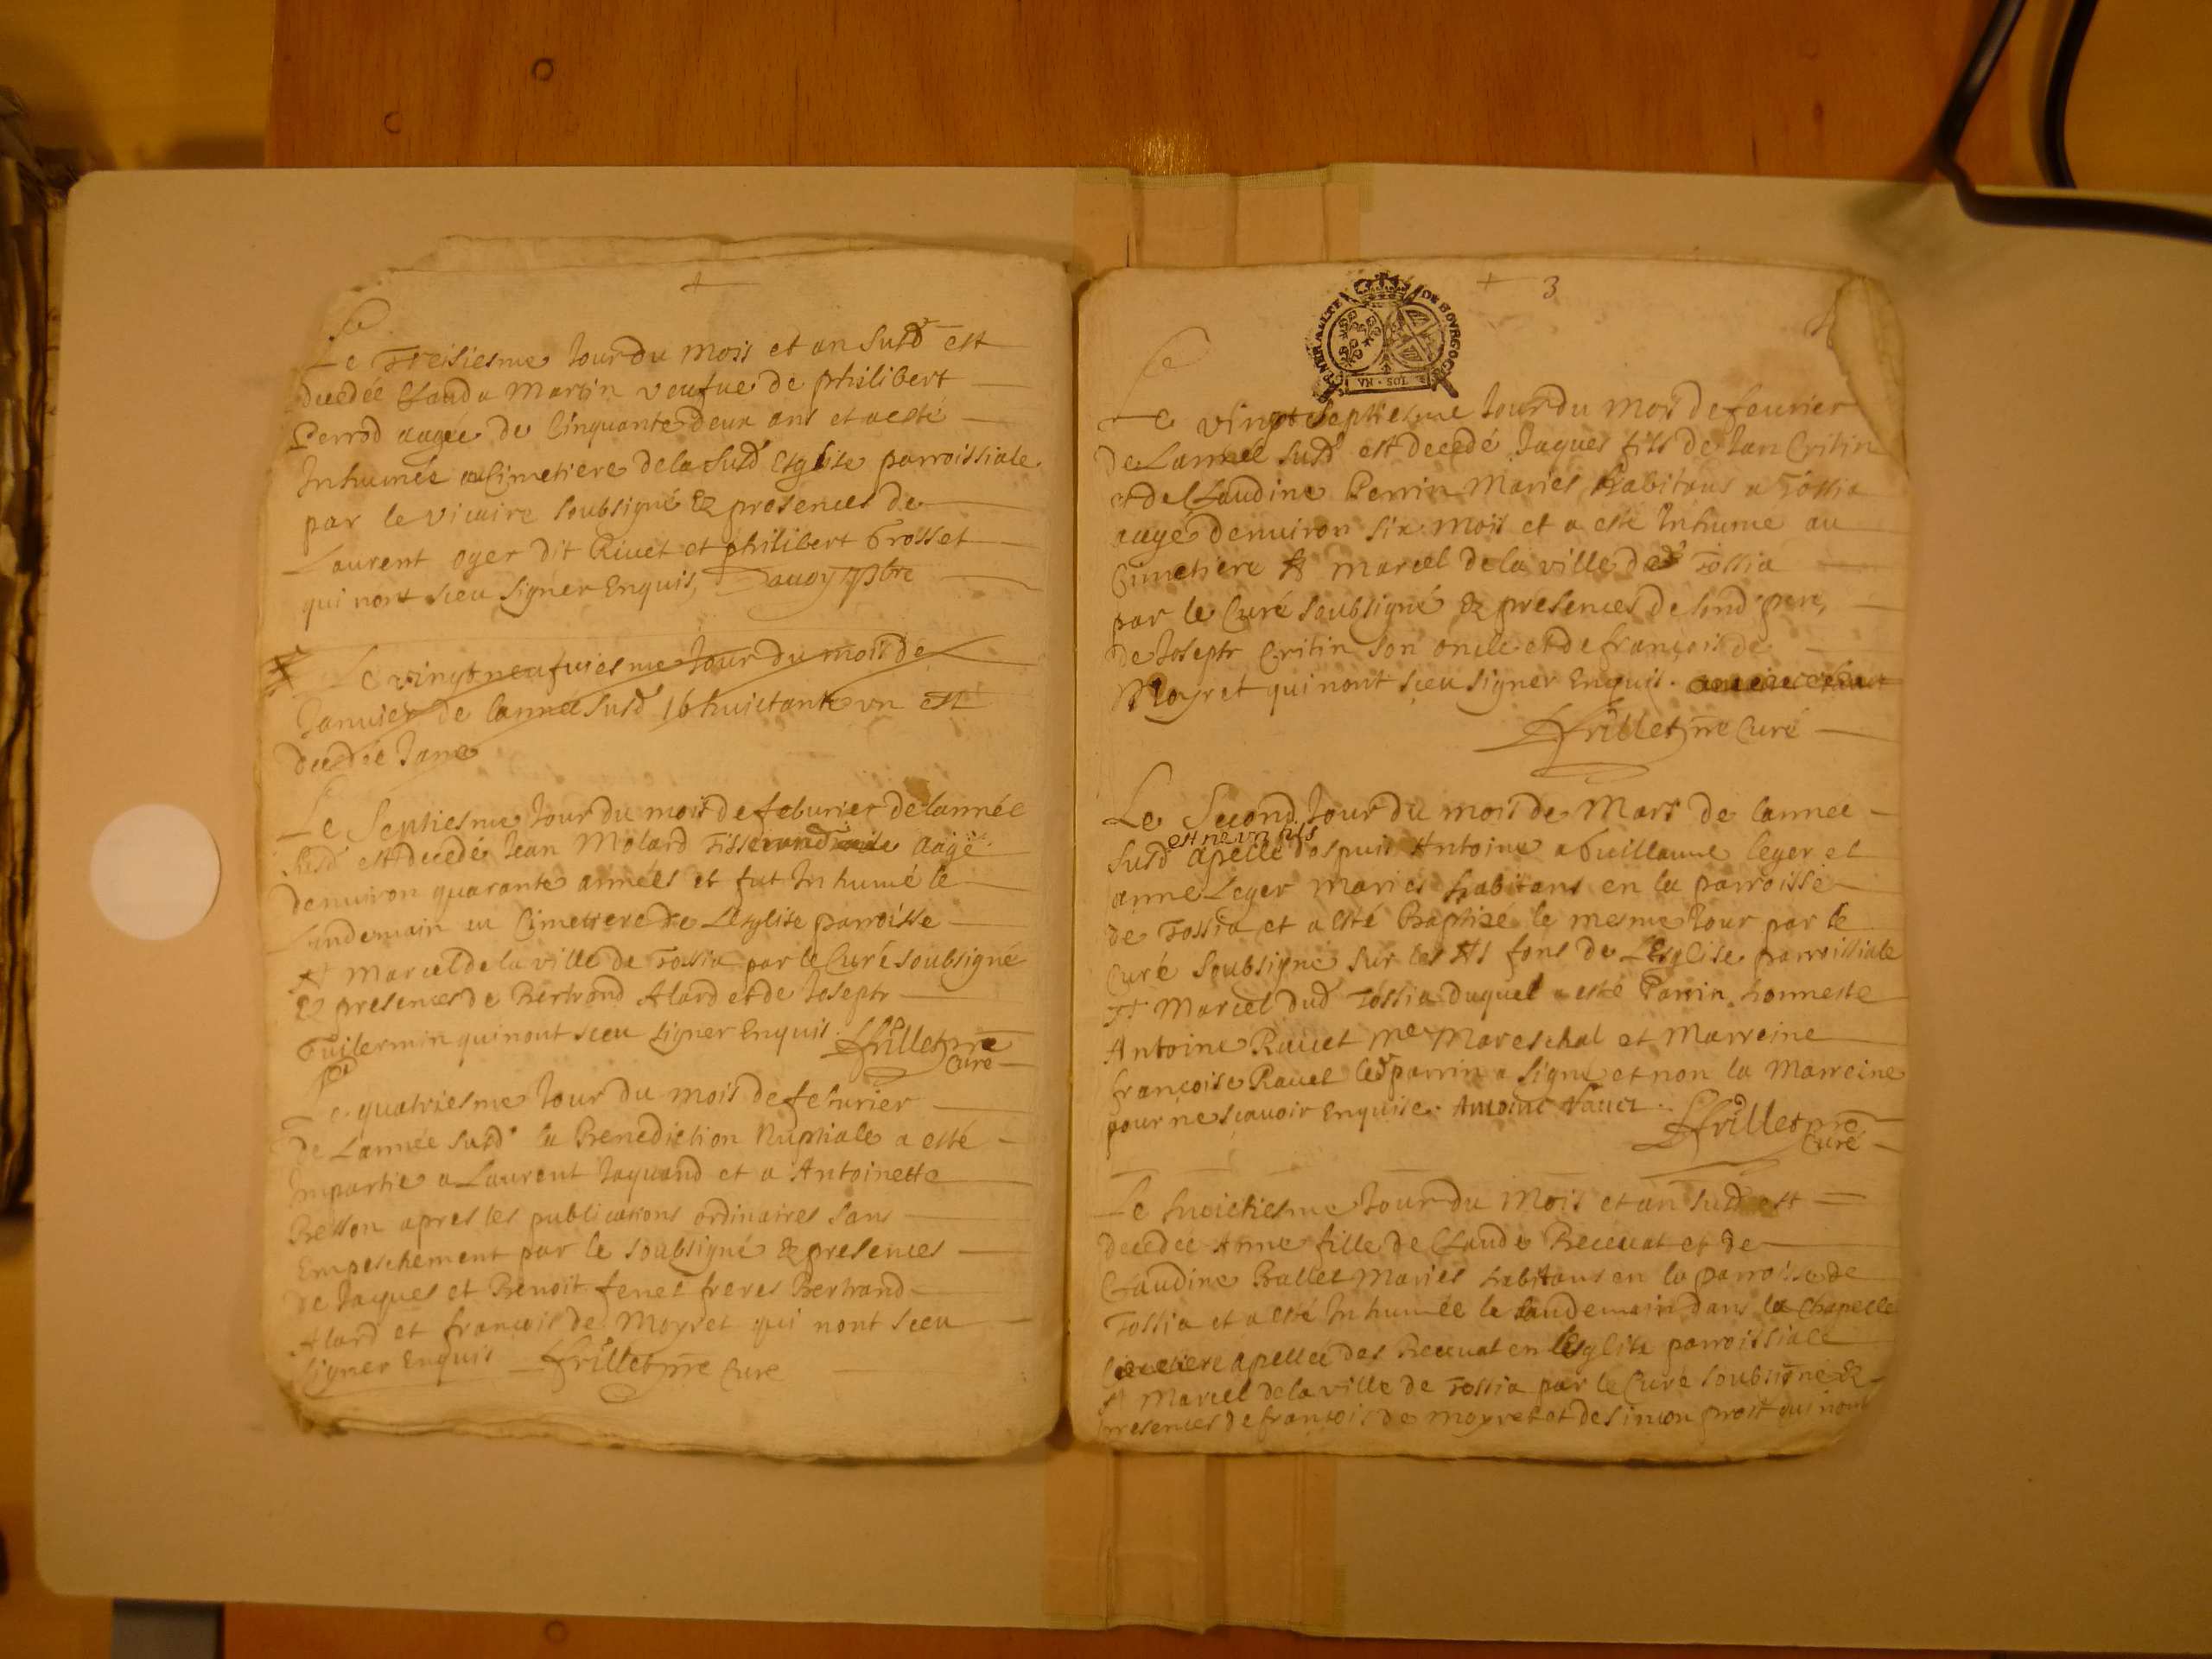 Le Treisiesme Jour du mois et an susd est
decedée Clauda Martin veufue de philibert
Perrod aagée de Cinquante deux ans et a esté
Inhumée au Cimetiere de la susd Esglise parroissiale
par le vicaire soubsigné Ez presences de
Laurent oger dit Rivet et philibert Grosset
qui nont sceu signer Enquis,
Le vingt neufuiesme Jour du mois de
Januier de lannée susd 16 huictante vn est
decedée Jane
Le Septiesme Jour du mois de feburier de lannée
susd est decedé Jean Molard Tisserand aagé
denuiron quarante années et fut Inhumé le
Lindemain au Cimetiere de Lesglise parroisse
St Marcel de la ville de Tossia par le Curé soubsigné
Ez presences de Bertrand Alard et de Joseph
Guilermin qui nont sceu signer Enquis. Frillet pre
Curé
Le quatriesme Jour du mois de feburier
de Lannée susd la Benediction Nuptiale a esté
Impartie a Laurent Jaquand et a Antoinette
Besson apres les publications ordinaires sans
Empeschement par le soubsigné Ez presences
de Jaques et Benoit fenet freres Bertrand
Alard et francois de Moyret qui nont sceu
signer Enquis Frillet pre Curé
+ 3
GNERALITE DE BOVRGOGNE
Le vingt septiesme Jour du mois de feurier
de Lannée susd est decedé Jaques fils de Jan Critin
et de Claudine Perrin Mariés habitans a Tossia
aagé denuiron six mois et a esté Inhumé au
Cimetiere St marcel de la ville de Tossia
par le Curé soubsigné Ez presences de sond pere,
de Joseph Critin son oncle et de françois de
Moyret qui nont sceu signer Enquis.
Frillet pre Curé
Le Second Jour du mois de Mars de lannee
est né vn fils
susd apellé despuis Antoine a Guillaume leger et
anne Leger mariés habitans en la parroisse
de Tossia et a esté Baptizé le mesme Jour par le
Curé soubsigné sur les Sts fons de LEsglise parroissiale
St Marcel dud Tossia duquel a esté Parrin honneste
Antoine Rauet Me Mareschal et Marreine
françoise Rauet led parrin a signé et non la Marreine
pour ne scauoir Enquise. Antoine Rauet. Frillet pre
Curé
Le huictiesme Jour du Mois et an susd est
decedée Anne fille de Claude Receuat et de
Claudine Ballet Mariés habitans en la parroisse de
Tossia et a esté Inhumée le landemain dans la Chapelle
apellée des Receuat en lEsglise parroissiale
St Marcel de la ville de Tossia par le Curé soubsigné Ez
presences de francois de moyret et de simon prost qui nont